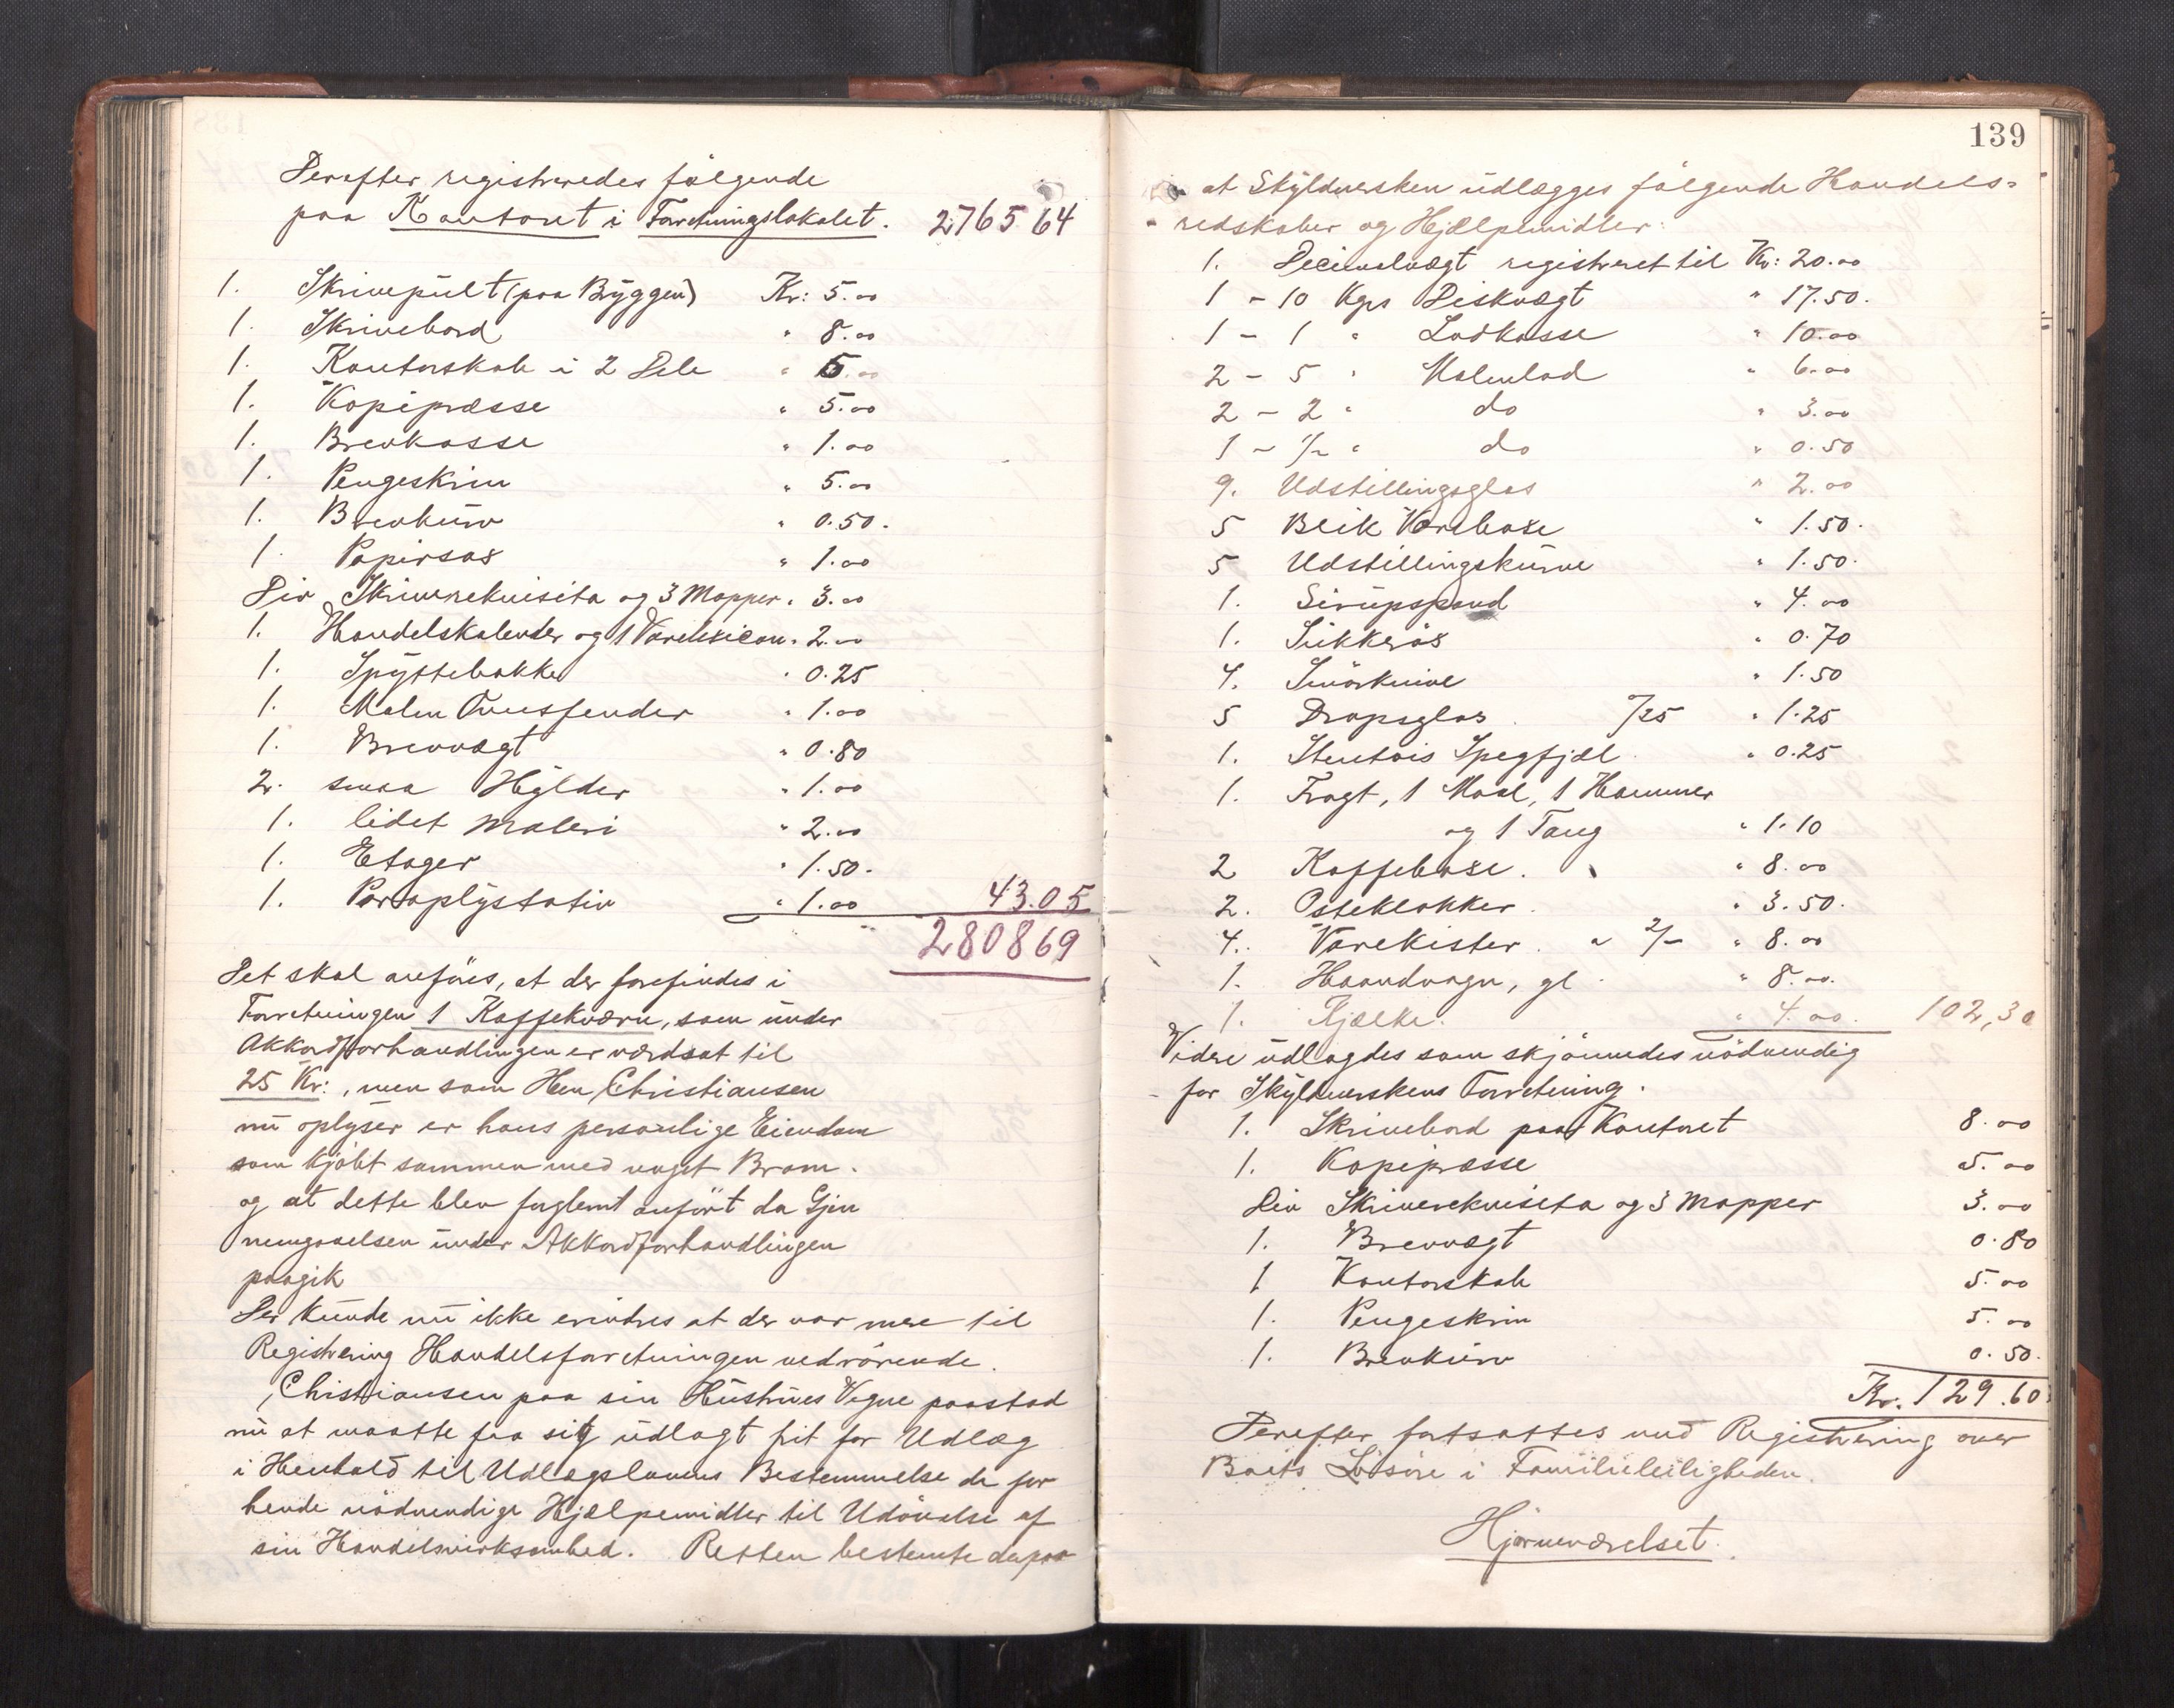 Derefter registreredes følgende
paa Kontoret i Forretningslokalet. 2765 64
1. Skrivepült (paa Bryggen) Kr: 5.00
1. Skrivebord " 8.00
1. Kontorskab i 2 Dele " 5.00
1. Kopipræsse " 5.00
1. Brevkasse " 1.00
1. Pengeskrin " 5.00
1. Brevkürv " 0.50.
1. Papirsax " 1.00
Div Skriverekvisita og 3 Mapper " 3.00
1. Handelskalender og 1 Varelexicon " 2.00
1. Spyttebakke " 0.25
1. Malm Ovnsfender " 1.00
1. Brevvægt " 0.80
2. smaa Hylder " 1.00
1. lidet Maleri " 2.00
1. Etager " 1.50.
1. Paraplystativ " 1.00 43.05
280869
Det skal anføres, at der forefindes i
Forretningen 1 Kaffekværn, som ünder
Akkordforhandlingen er værdsat til
25 Kr:, men som Herr Christiansen
nü oplyser er hans personlige Eiendom
som kjøbt sammen med noget Bram.
og at dette blev forglemt anført da Gjen
nemgaaelsen ünder Akkordforhandlingen
paagik
Der künde nü ikke erindres at der var mere til
Registrering Handelsforretningen vedrørende.
Christiansen paa sin Hüstrues Vegne paastod
nü at maatte faa sig üdlagt frit for Udlæg
i Henhold til Udlægslovens Bestemmelse de for
hende nødvendige Hjælpemidler til Udøvelse af
sin Handelsvirksomhed. Retten bestemte derpaa
139
at Skyldnersken üdlægges følgende Handels=
redskaber og Hjælpemidler:
1. Decimalvægt registreret til Kr: 20.00
1 - 10 Kgrs Diskvægt " 17.50.
1 - 1 " Lodkasse " 10.00
2 - 5 " Malmlod " 6.00
2 - 2 " do " 3.00
1 - 1/2 " do " 0.50
9. Udstillingsglas " 2.00
5 Blik Varebaxe " 1.50.
5 Udstillingskürve " 1.50.
1. Sirüpspand " 4.00
1. Sükkersax " 0.70
4. Smørknive " 1.50
5 Dropsglas /25 " 1.25
1. Stentøis Spegfjæl " 0.25
1. Tragt, 1 Maal, 1 Hammer
og 1 Tang " 1.10
2 Kaffebaxe. " 8.00
2. Osteklokker " 3.50.
4. Varekister. a 2/- " 8.00
1. Haandvogn, gl. " 8.00.
1. Kjælke. " 4.00. 102,30
Videre üdlagdes som skjønnedes nødvendig
for Skyldnerskens Forretning.
1. Skrivebord paa Kontoret 8.00
1. Kopipræsse 5.00
Div Skriverekvisita og 3 Mapper 3.00
1. Brevvægt 0.80
1 Kontorskab 5.00
1. Pengeskrin 5.00
1. Brevkürv 0.50.
Kr. 129.60
Derefter fortsattes med Registrering over
Boets Løsøre i Familieleiligheden.
Hjørneværelset.